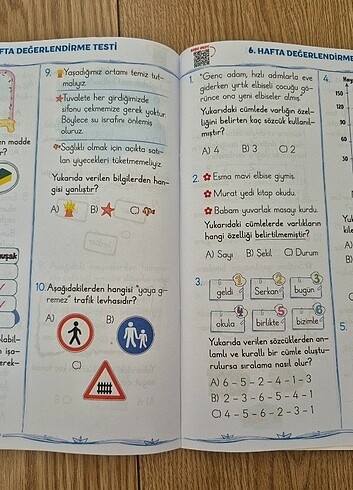 AFTA DEĞERLENDİRME TESTİ
en madde
r?
uşak
labil-
n işa-
erek-
9. Yaşadığımız ortamı temiz tut-
malıyız.
Tuvalete her girdiğimizde
sifonu çekmemize gerek yoktur.
Böylece su israfını önlemiş
oluruz.
Sağlıklı olmak için açıkta satı-
lan yiyecekleri tüketmemeliyiz.
Yukarıda verilen bilgilerden han-
gisi yanlıştır?
A) B) C)
10. Aşağıdakilerden hangisi "yaya gi-
remez" trafik levhasıdır?
A) B)
C)
6. HAFTA DEĞERLENDİRME
1. "Genç adam, hızlı adımlarla eve
giderken yırtık elbiseli çocuğu gö-
rünce ona yeni elbiseler almış."
Yukarıdaki cümlede varlığın özel-
liğini belirten kaç sözcük kullanıl-
mıştır?
A) 4 B) 3 C) 2
2. Esma mavi elbise giymiş.
Murat yedi kitap okudu.
Babam yuvarlak masayı kurdu.
Yukarıdaki cümlelerde varlıkların
hangi özelliği belirtilmemiştir?
A) Sayı B) Şekil C) Durum
3. 1 2 3
geldi Serkan bugün
4 5 6
okula birlikte bizimle
Yukarıda verilen sözcüklerden an-
lamlı ve kurallı bir cümle oluştu-
rulursa sıralama nasıl olur?
A) 6 - 5 - 2 - 4 - 1 - 3
B) 2 - 3 - 6 - 5 - 4 - 1
C) 4 - 5 - 6 - 2 - 3 - 1
4.
150
120
90
60
30
5.